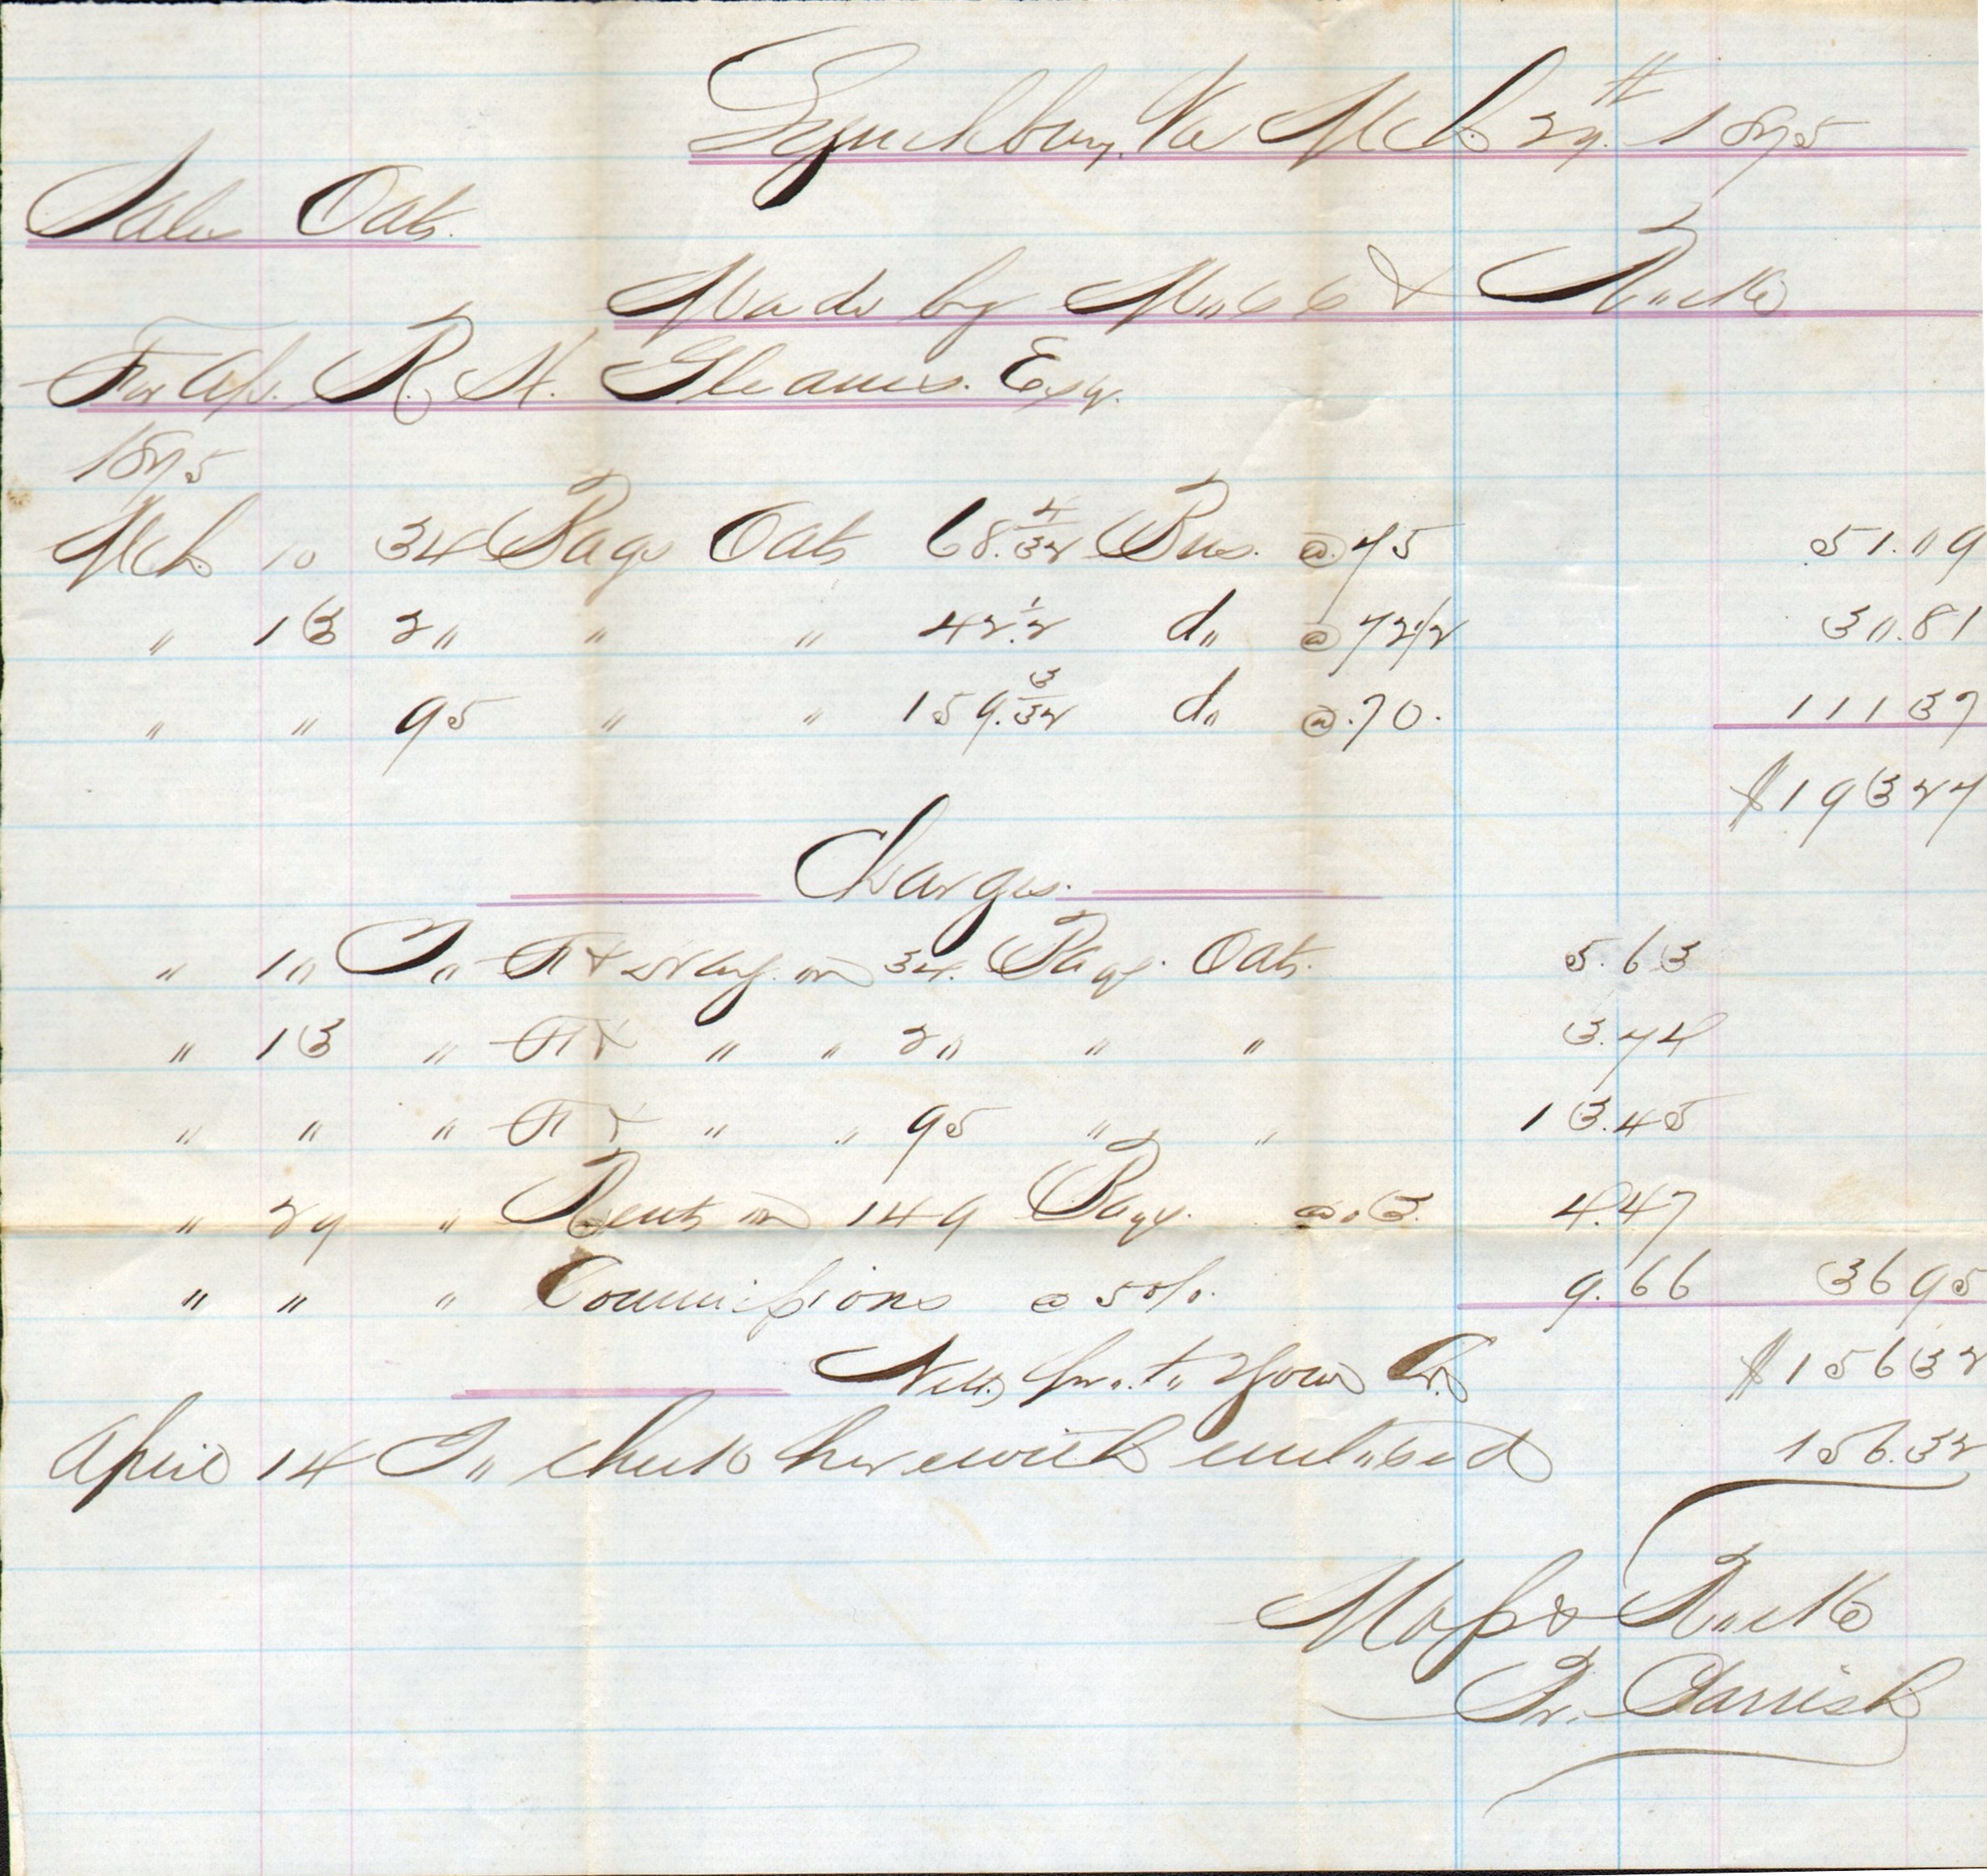 Lynchburg, Va Mch 29th 1875
Sales Oats.
Made by Moss & Rucker
For a/c. R. H. Gleaves. Esq.
1875
Mch 10 34 Bags Oats 68.4/32 Bus. @ 75 51.09
" 13 20 " " 42.1/2 do @ 72 1/2 30.81
" " 95 " " 159.3/32 do @ .70. 111 37
$193 27
Charges.
" 10 To Ft & dray. on 34. Bags. Oats. 5.63
" 13 " Ft & " " 20 " " 3.74
" " " Ft & " " 95 " " 13.45
" 29 " Rents on 149 Bags. @ .3. 4.47
" " " Commissions @ 5%. 9.66 36 95
Nett, pro. to Your Cr. $156 32
April 14 To check herewith enclosed 156.32
Moss & Rucker
Pr. Parrish